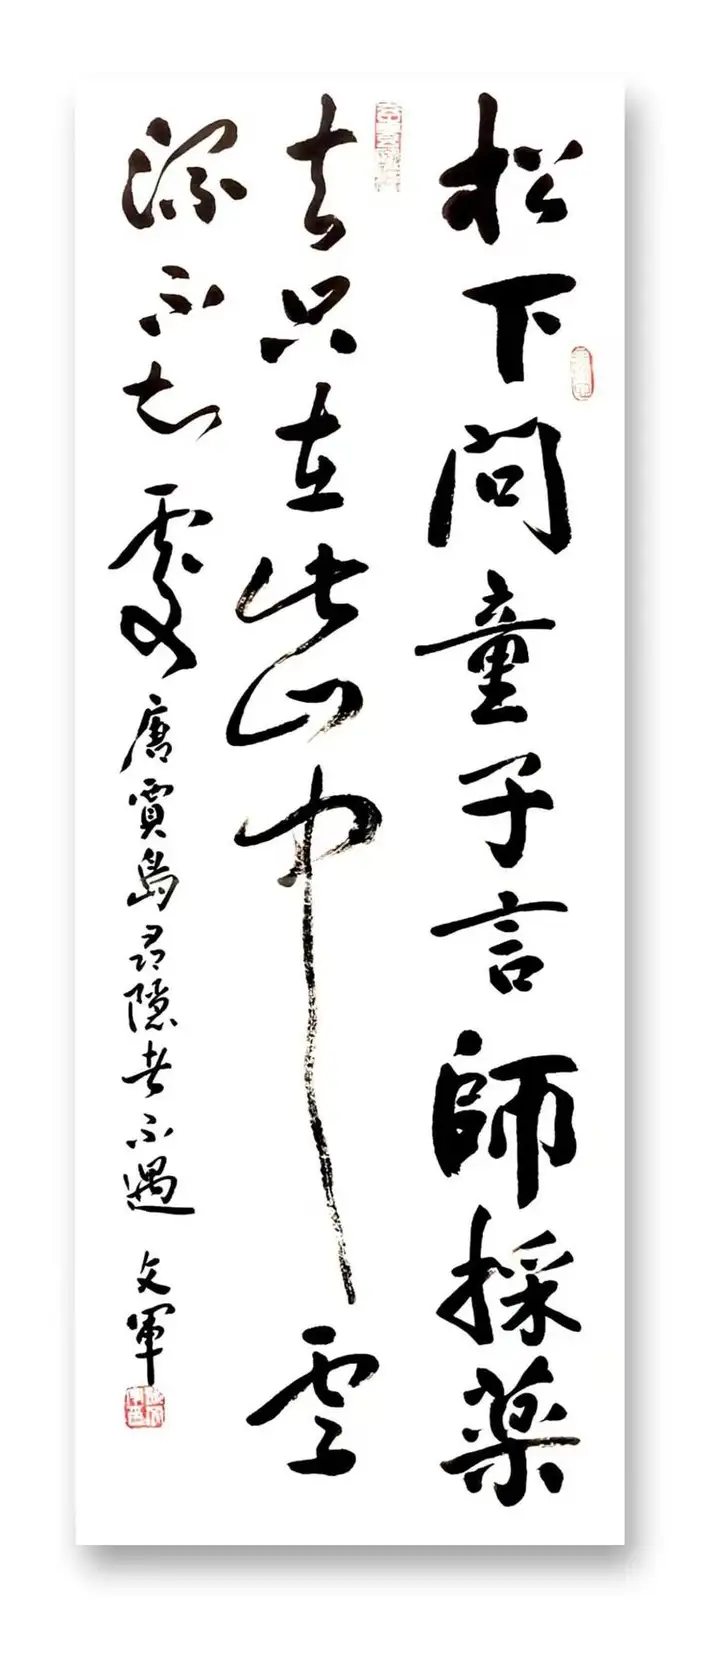 松下問童子言師採薬
去只在此山中雲
深不知處唐賈島尋隱者不遇文軍